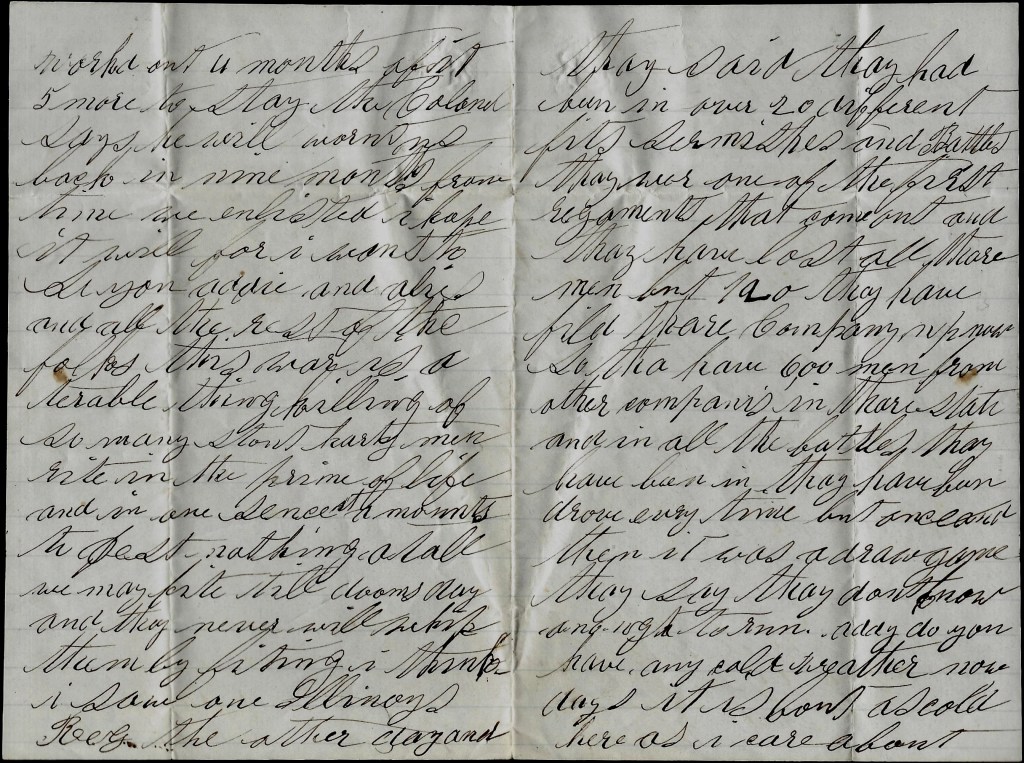 workd out 4 months of it
5 more to stay the Colonel
says he will worn us
back in nine months from
time we enlisted i hope
it will for i want to
se you addie and alis
and all the rest of the
folks this war is a
terable thing killing of
so many stout harty men
rite in the prime of life
and in one sence it amounts
to jest nothing atall
we may fite till dooms day
and they never will whip
them by fiting i think
i saw one Illinoys
Reg. the other day and
thay said thay had
bun in over 20 different
fits scrmishes and Battles
thay wor one of the first
regaments that come out and
thay have lost all thare
men but 120 thay have
fild thare Company up now
so tha have 600 men from
other companis in thare state
and in all the battles thay
have been in thay have bun
drove every time but once and
then it was a draw game
thay say thay dont know
to run. addy do you
have any cold weather now
days it is bout as cold
here as i care about